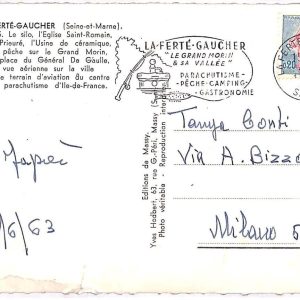 FERTÉ-GAUCHER (Seine-et-Marne).
Le silo, l'Eglise Saint-Romain,
Prieuré, l'Usine de céramique,
pêche sur le Grand Morin,
place du Général De Gaulle,
vue aérienne sur la ville
terrain d'aviation du centre
parachutisme d'Ile-de-France.
LA-FERTÉ-GAUCHER
"LE GRAND MORIN
& SA VALLÉE"
PARACHUTISME-
-PÊCHE-CAMPING
-GASTRONOMIE
0,20
Editions de Massy
Yves Hadbert, 63, rue G.-Péri, Massy
Photo véritable Reproduction
Conti
Via A.
Milano
/6/63